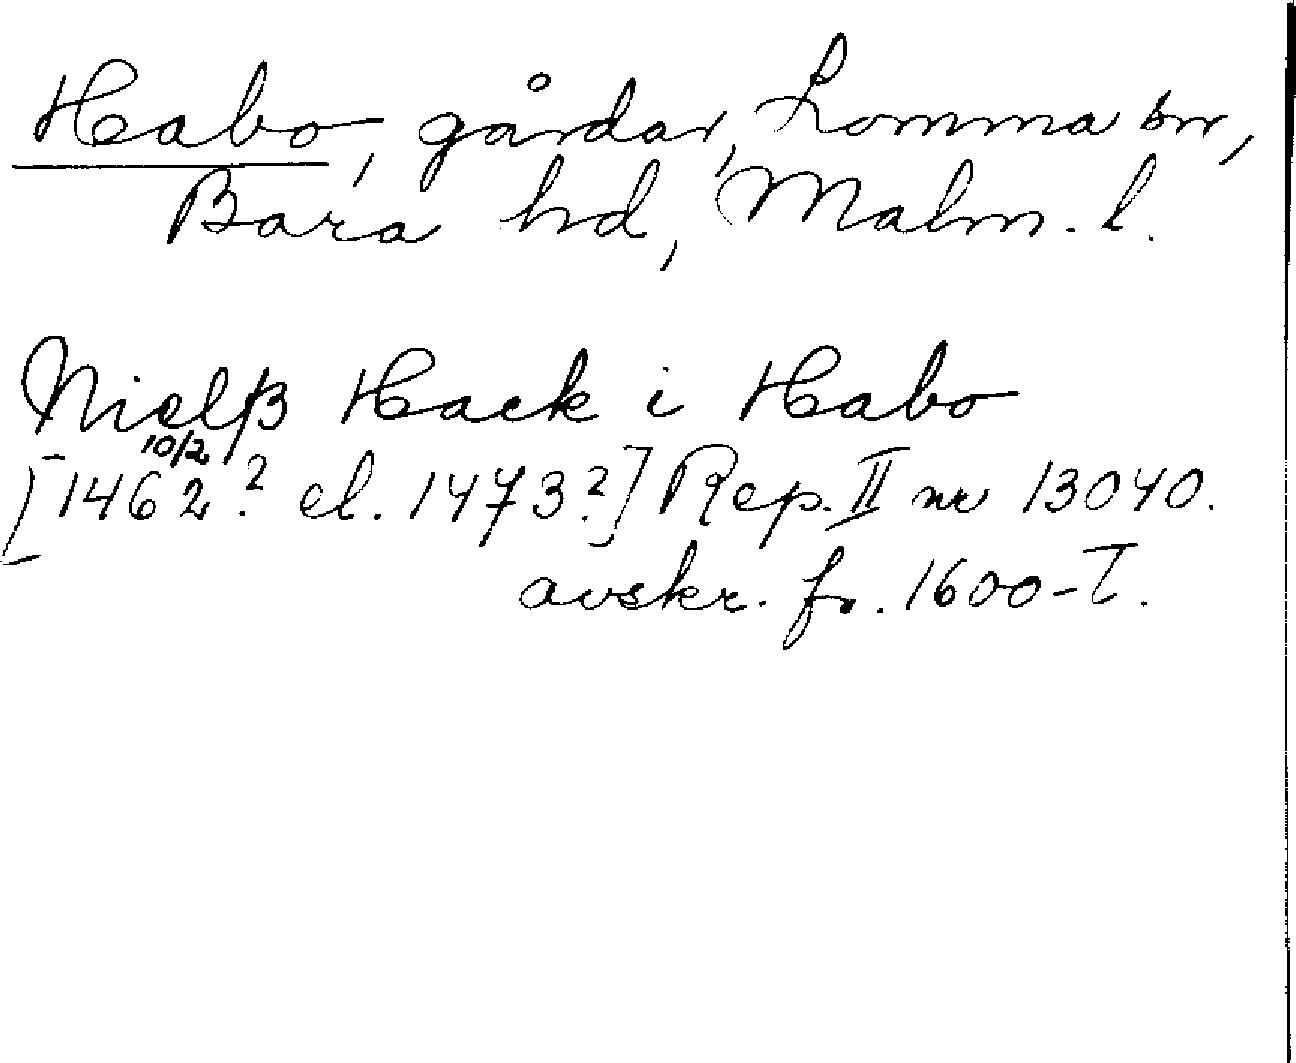 Habo, gårdar, Lomma sn,
Bara hd, Malm. l.
Nielß Hack i Habo
10/2
[1462? el. 1473?] Rep. II nr 13040.
avskr. fr. 1600-T.